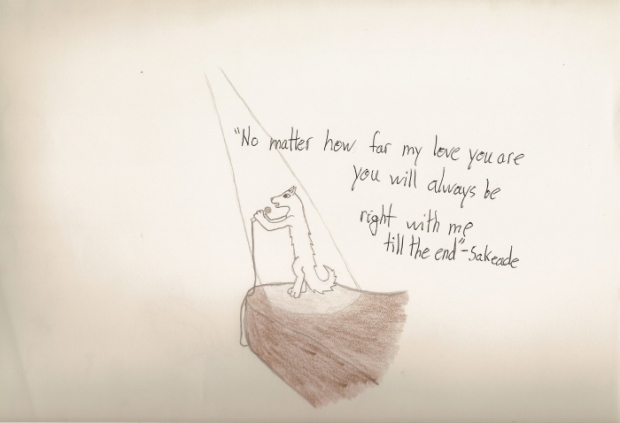 "No matter how far my love you are
you will always be
right with me
till the end" -Sakeade